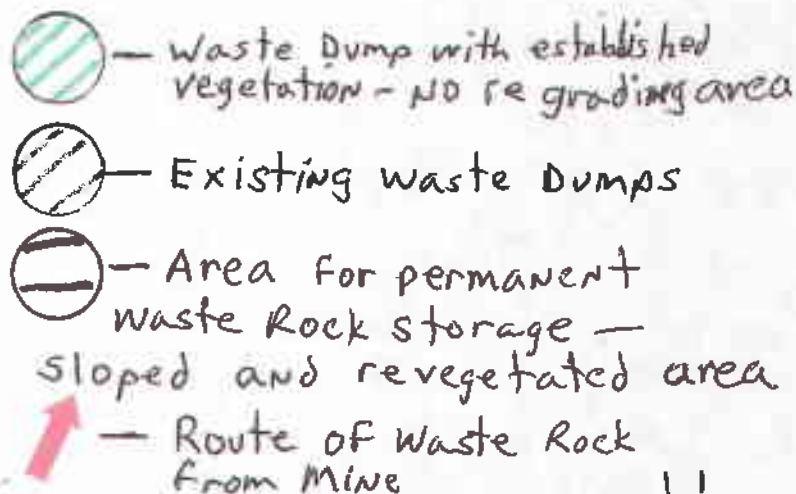 — Waste Dump with established
vegetation - NO re grading area
— Existing waste Dumps
— Area for permanent
waste Rock storage —
sloped and revegetated area
— Route of Waste Rock
from Mine